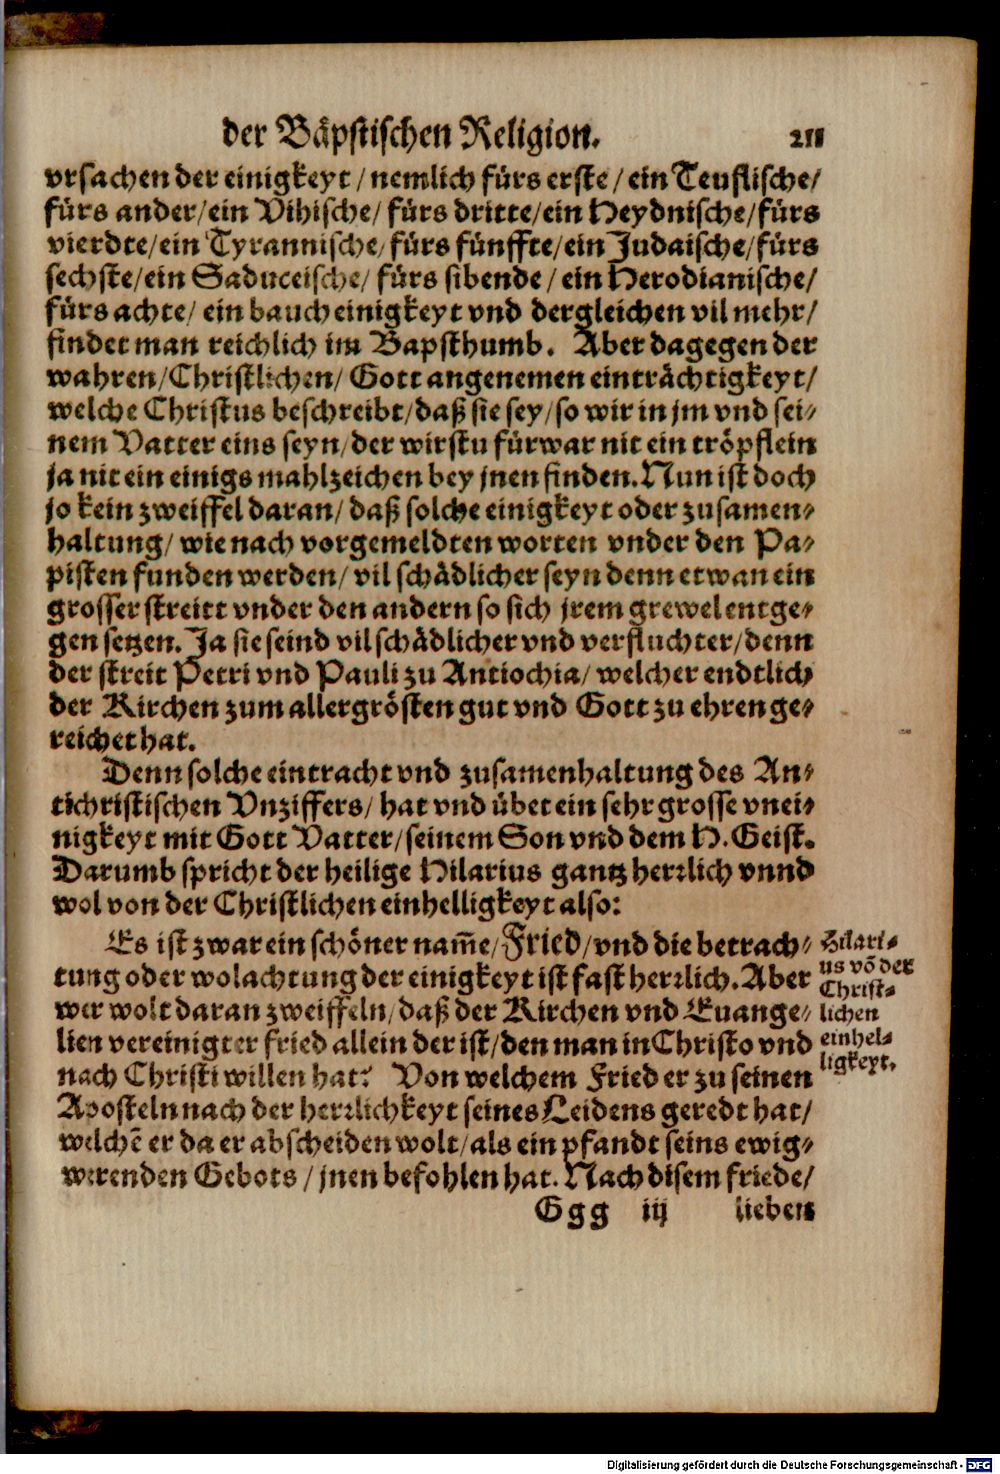 der Bäpstischen Religion. 211
vrsachen der einigkeyt / nemlich fürs erste / ein Teuflische/
fürs ander/ein Vihische/ fürs dritte/ein Heydnische/fürs
vierdte/ein Tyrannische/ fürs fünffte/ein Judaische/fürs
sechste/ein Saduceische/ fürs sibende / ein Herodianische/
fürs achte/ ein bauch einigkeyt vnd dergleichen vil mehr/
findet man reichlich im Bapsthumb. Aber dagegen der
wahren/Christlichen/ Gott angenemen einträchtigkeyt/
welche Christus beschreibt/daß sie sey/so wir in jm vnd sei-
nem Vatter eins seyn/der wirstu fürwar nit ein tröpflein
ja nit ein einigs mahlzeichen bey jnen finden. Nun ist doch
jo kein zweiffel daran/ daß solche einigkeyt oder zusamen-
haltung/ wie nach vorgemeldten worten vnder den Pa-
pisten funden werden/ vil schädlicher seyn denn etwan ein
grosser streitt vnder den andern so sich jrem grewel entge-
gen setzen. Ja sie seind vil schädlicher vnd verfluchter/denn
der streit Petri vnd Pauli zu Antiochia/ welcher endtlich
der Kirchen zum allergrösten gut vnd Gott zu ehren ge-
reichet hat.
Denn solche eintracht vnd zusamenhaltung des An-
tichristischen Vnziffers/ hat vnd übet ein sehr grosse vnei-
nigkeyt mit Gott Vatter/seinem Son vnd dem H. Geist.
Darumb spricht der heilige Hilarius gantz herrlich vnnd
wol von der Christlichen einhelligkeyt also:
Es ist zwar ein schöner nam̃e/Fried/vnd die betrach-
tung oder wolachtung der einigkeyt ist fast herrlich. Aber
wer wolt daran zweiffeln/daß der Kirchen vnd Euange-
lien vereinigter fried allein der ist/den man in Christo vnd
nach Christi willen hat? Von welchem Fried er zu seinen
Aposteln nach der herrlichkeyt seines Leidens geredt hat/
welchẽ er da er abscheiden wolt/als ein pfandt seins ewig-
werenden Gebots / jnen befohlen hat. Nach disem friede/
Hilari-
us võ der
Christ-
lichen
einhel-
ligkeyt.
Ggg iij lieben
Digitalisierung gefördert durch die Deutsche Forschungsgemeinschaft - DFG